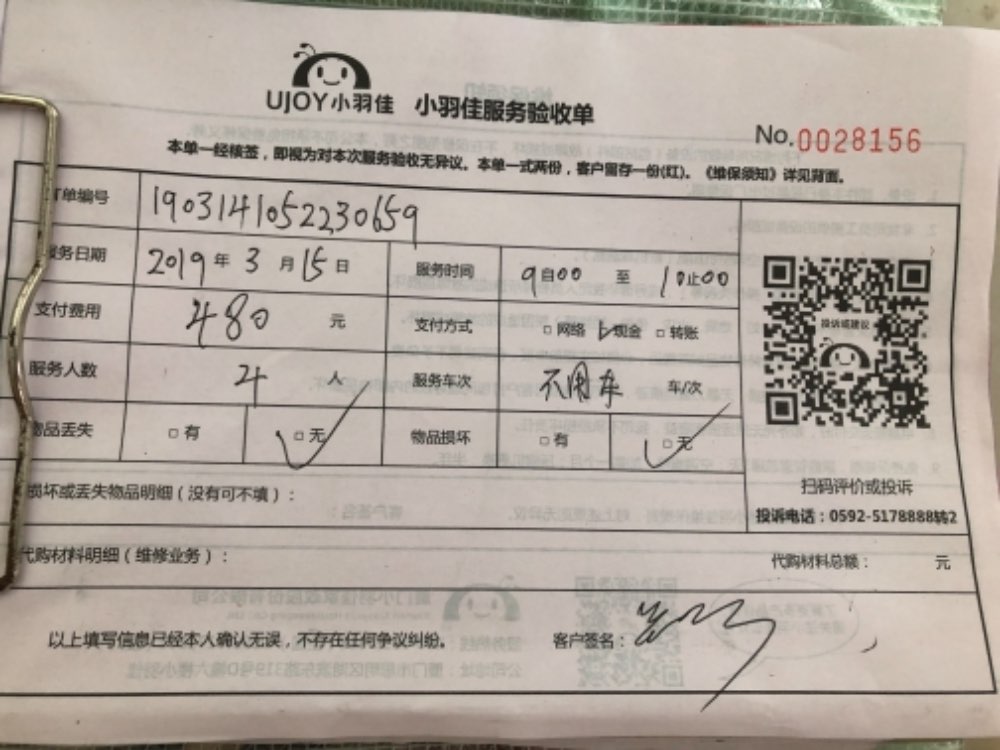 UJOY小羽佳 小羽佳服务验收单
No.0028156
本单一经核签，即视为对本次服务验收无异议。本单一式两份，客户留存一份(红)。《维保须知》详见背面。
单编号 1903141052230659
服务日期 2019年3月15日 服务时间 9自00 至 10止00
支付费用 480 元 支付方式 □网络 □现金 □转账
服务人数 4 人 服务车次 不用车 车/次
物品丢失 □有 □无 物品损坏 □有 □无
投诉或建议
扫码评价或投诉
投诉电话：0592-5178888转2
损坏或丢失物品明细（没有可不填）：
代购材料明细（维修业务）： 代购材料总额： 元
以上填写信息已经本人确认无误，不存在任何争议纠纷。 客户签名：